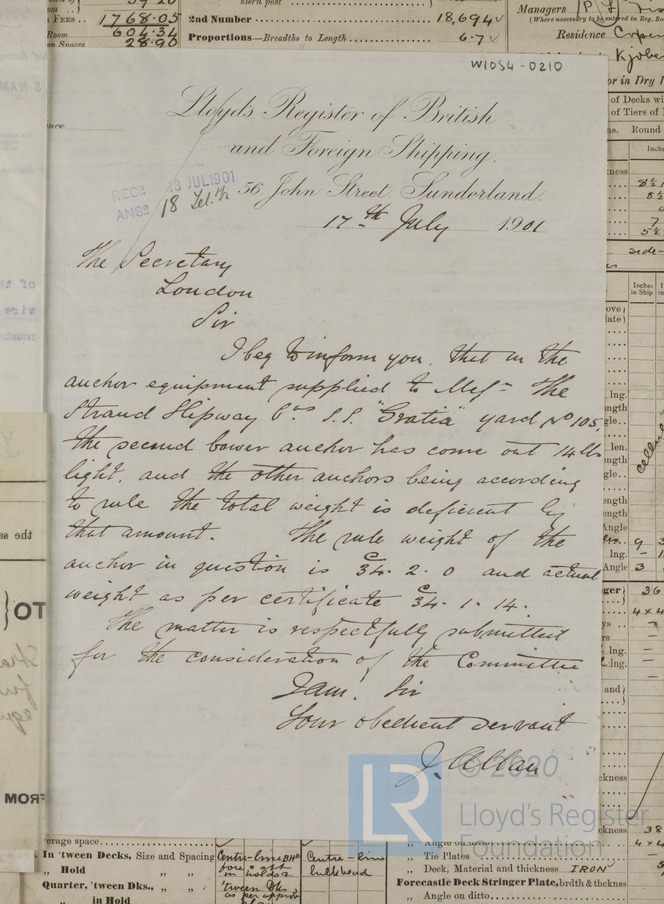 1768.05
604.34
28.90
2nd Number
18,694
Proportions—Breadths to Length
6.7
Managers
(Where necessary to be entered in Reg. Bo
Residence
W1054-0210
Lloyd's Register of British
and Foreign Shipping,
56, John Street, Sunderland.
RECD 18 JUL 1901
ANSD 18 Tel. th
17th July 1901
The Secretary
London
Sir
I beg to inform you, that in the
anchor equipment supplied to Messrs The
Strand Slipway Cos S.S. "Gratia" yard No 105,
the second bower anchor has come out 14 lbs
light, and the other anchors being according
to rule the total weight is deficient by
that amount. The rule weight of the
anchor in question is C 34. 2. 0 and actual
weight as per certificate C 34. 1. 14.
The matter is respectfully submitted
for the consideration of the Committee
I am, Sir
Your obedient servant
J. Allan
© 2020
LR
Lloyd's Register
Foundation
TO
FROM
In 'tween Decks, Size and Spacing
" Hold " "
Quarter, 'tween Dks., "
in Hold "
Centre-line
bulkhead
" Angle on
" Tie Plates
" Deck, Material and thickness IRON
Forecastle Deck Stringer Plate, brdth & thckness
" Angle on ditto